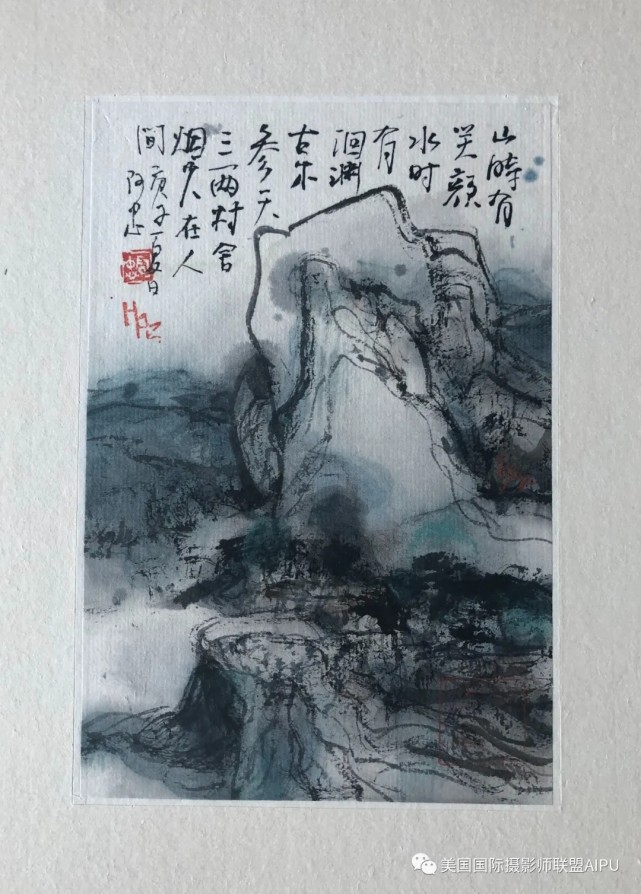 山時有
笑颜
水时
有
洄渊
古木
参天
三两村舍
烟火在人
间 庚子夏日
阿忠
美国国际摄影师联盟AIPU